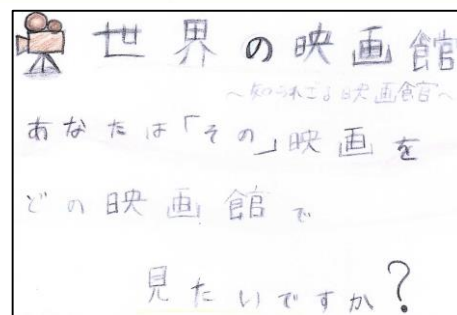 世界の映画館
～知られざる映画館～
あなたは「その」映画を
どの映画館で
見たいですか?